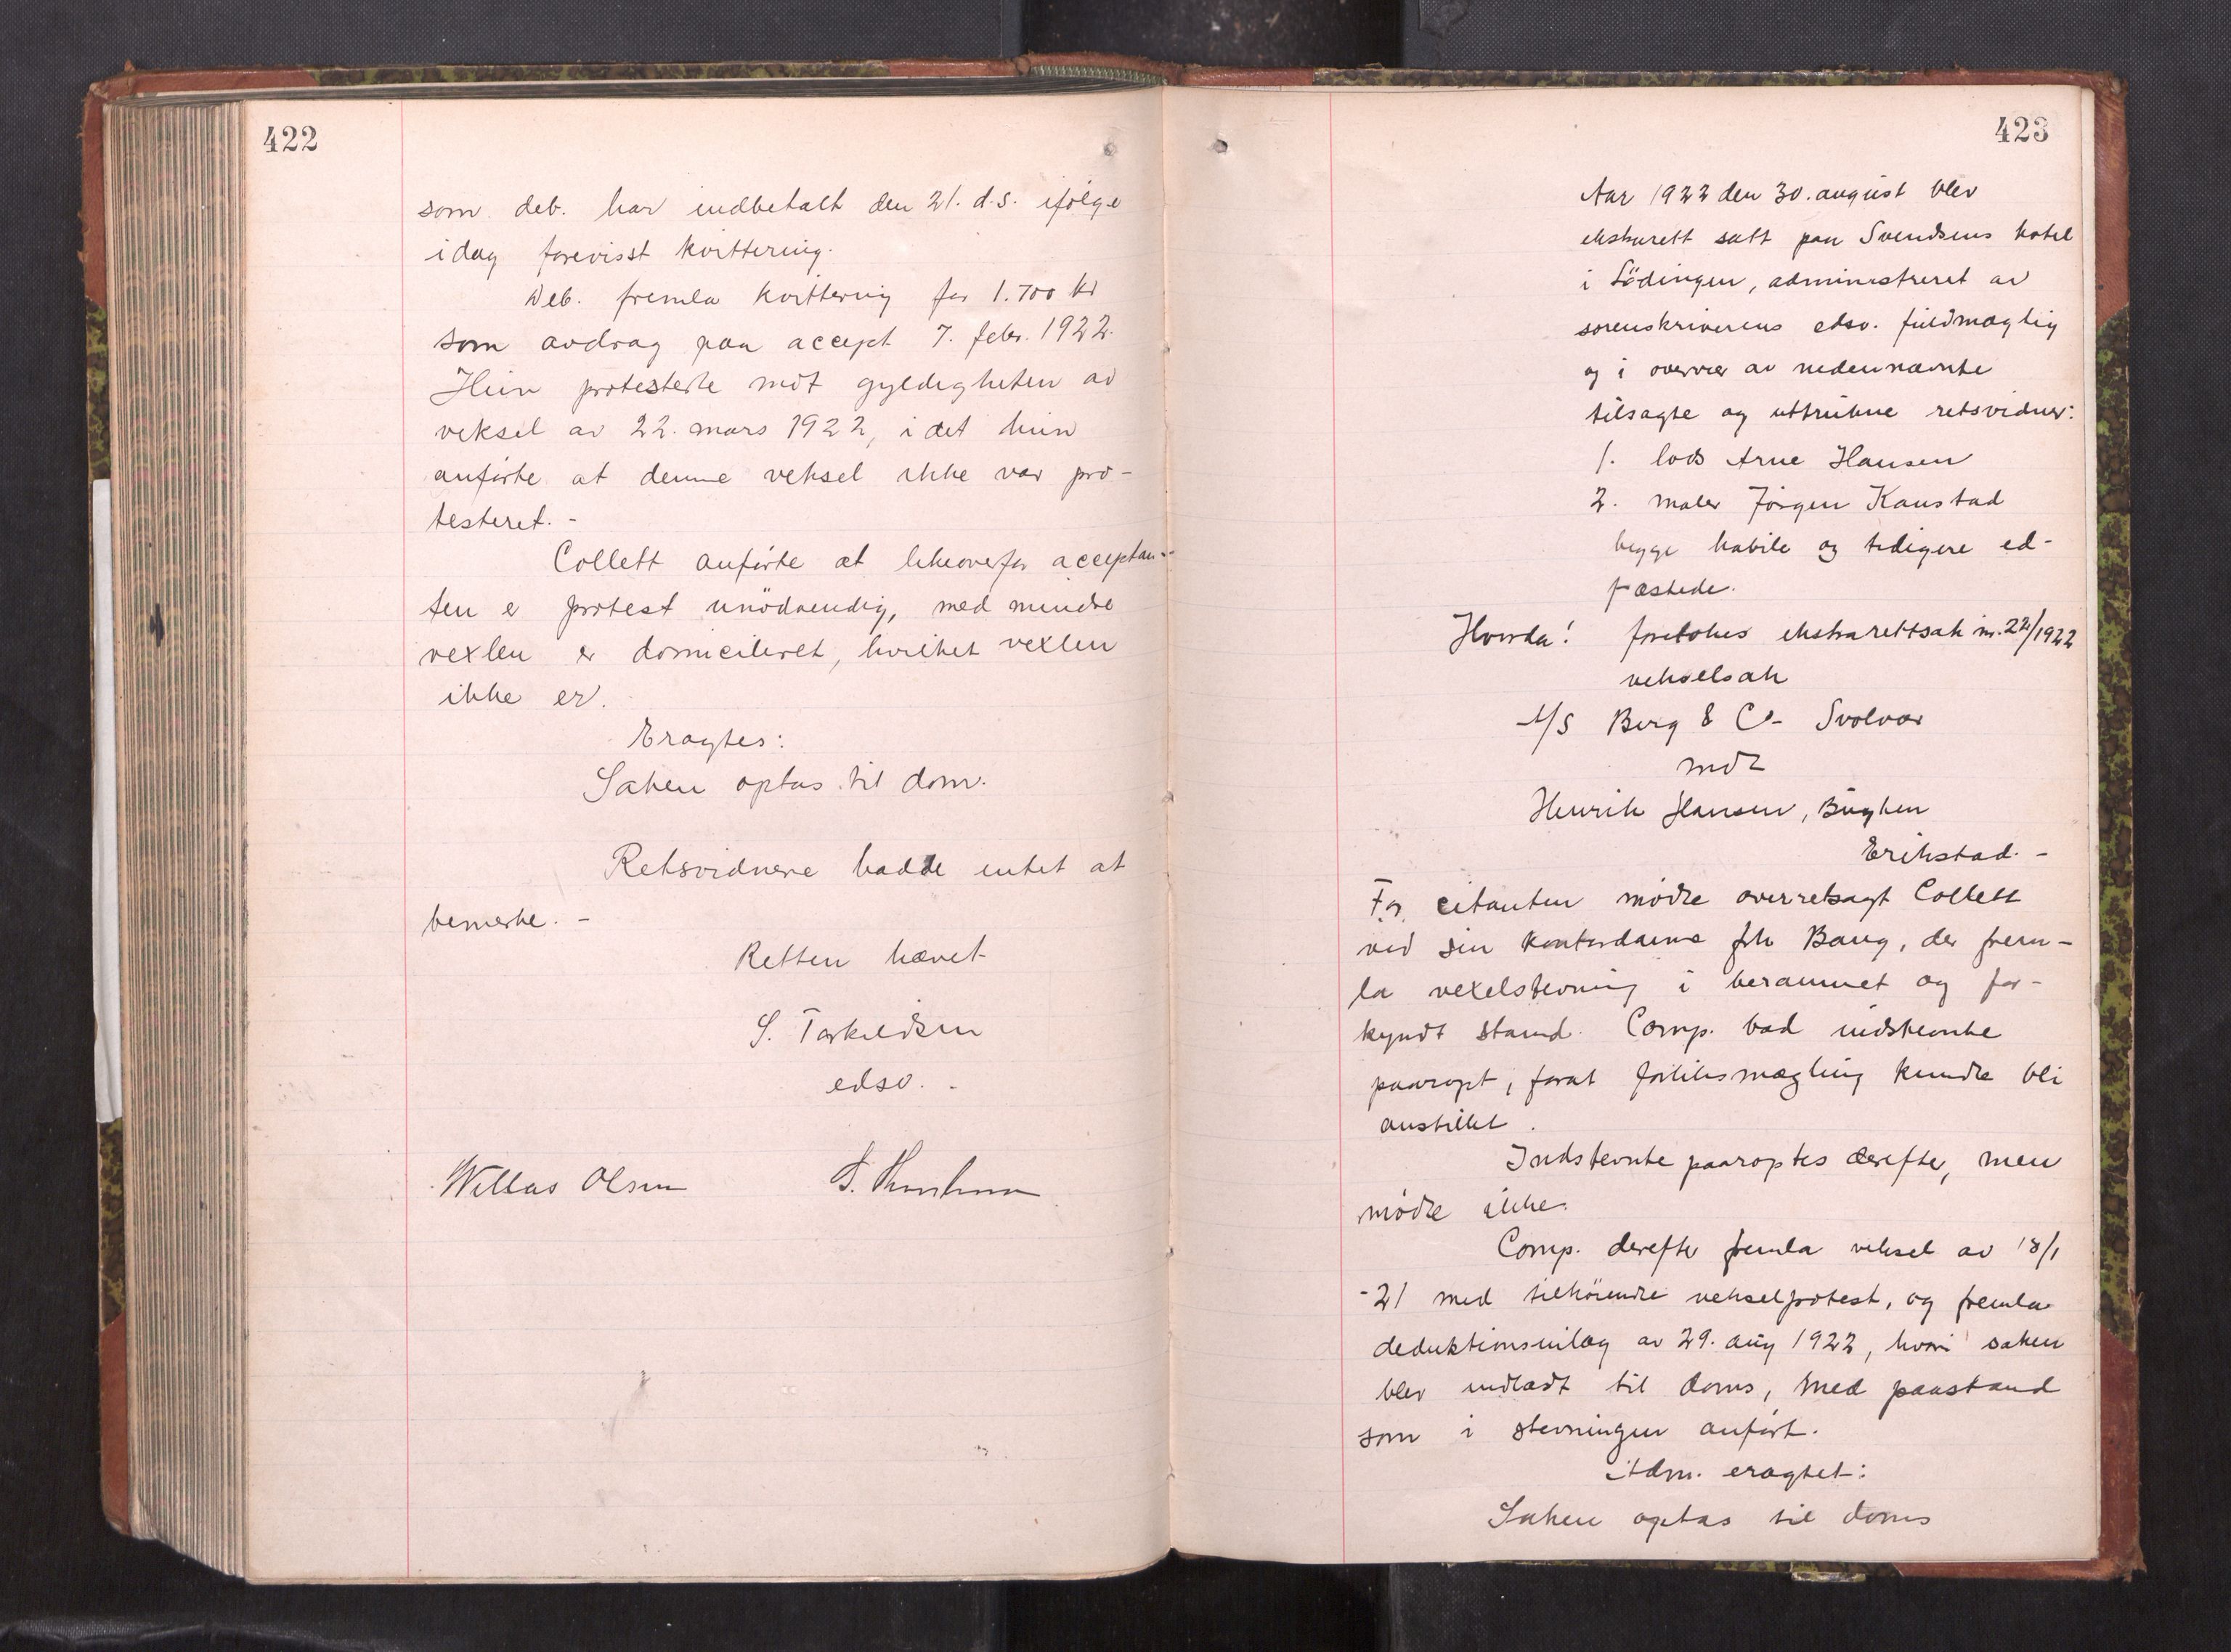 422
som deb. har indbetalt den 21. d.s. ifølge
idag forevisst kvittering.
Deb. fremla kvittering for 1.700 kr
som avdrag paa accept 7. febr. 1922.
Hun protesterte mot gyldigheten av
veksel av 22. mars 1922, i det hun
anførte at denne veksel ikke var pro-
testeret. -
Collett anførte at likeoverfor acceptan-
ten er protest unödvendig, med mindre
vexlen er domicileret, hvilket vexlen
ikke er.
Eragtes:
Saken optas til dom.
Retsvidnene hadde intet at
bemerke. -
Retten hævet
S. Torkildsen
edsv. -
Willas Olsen
423
Aar 1922 den 30. august blev
ekstrarett satt paa Svendsens hotel
i Lödingen, administreret av
sorenskriverens edsv. fuldmægtig
og i overvær av nedennævnte
tilsagte og uttrukne retsvidner:
1. lods Arne Hansen
2. maler Jörgen Kanstad
begge habile og tidigere ed-
fæstede.
Hvorda! foretokes ekstrarettsak nr. 22/1922
vekselsak
A/S Berg & Co - Svolvær
mot
Henrik Hansen, Bugten
Erikstad. -
For citanten mødte overretssagf Collett
ved sin kontordame frk Bang, der frem-
la vexelstevning i berammet og for-
kyndt stand. Comp. bad indstevnte
paaropt, forat forliksmægling kunde bli
anstillet.
Indstevnte paaroptes derefter, men
mødte ikke.
Comp. derefter fremla veksel av 18/1
-21 med tilhörende vekselprotest, og fremla
deduktionsinlæg av 29. aug 1922, hvori saken
blev indladt til doms, med paastand
som i stevningen anført.
Adm. eragtet:
Saken optas til doms